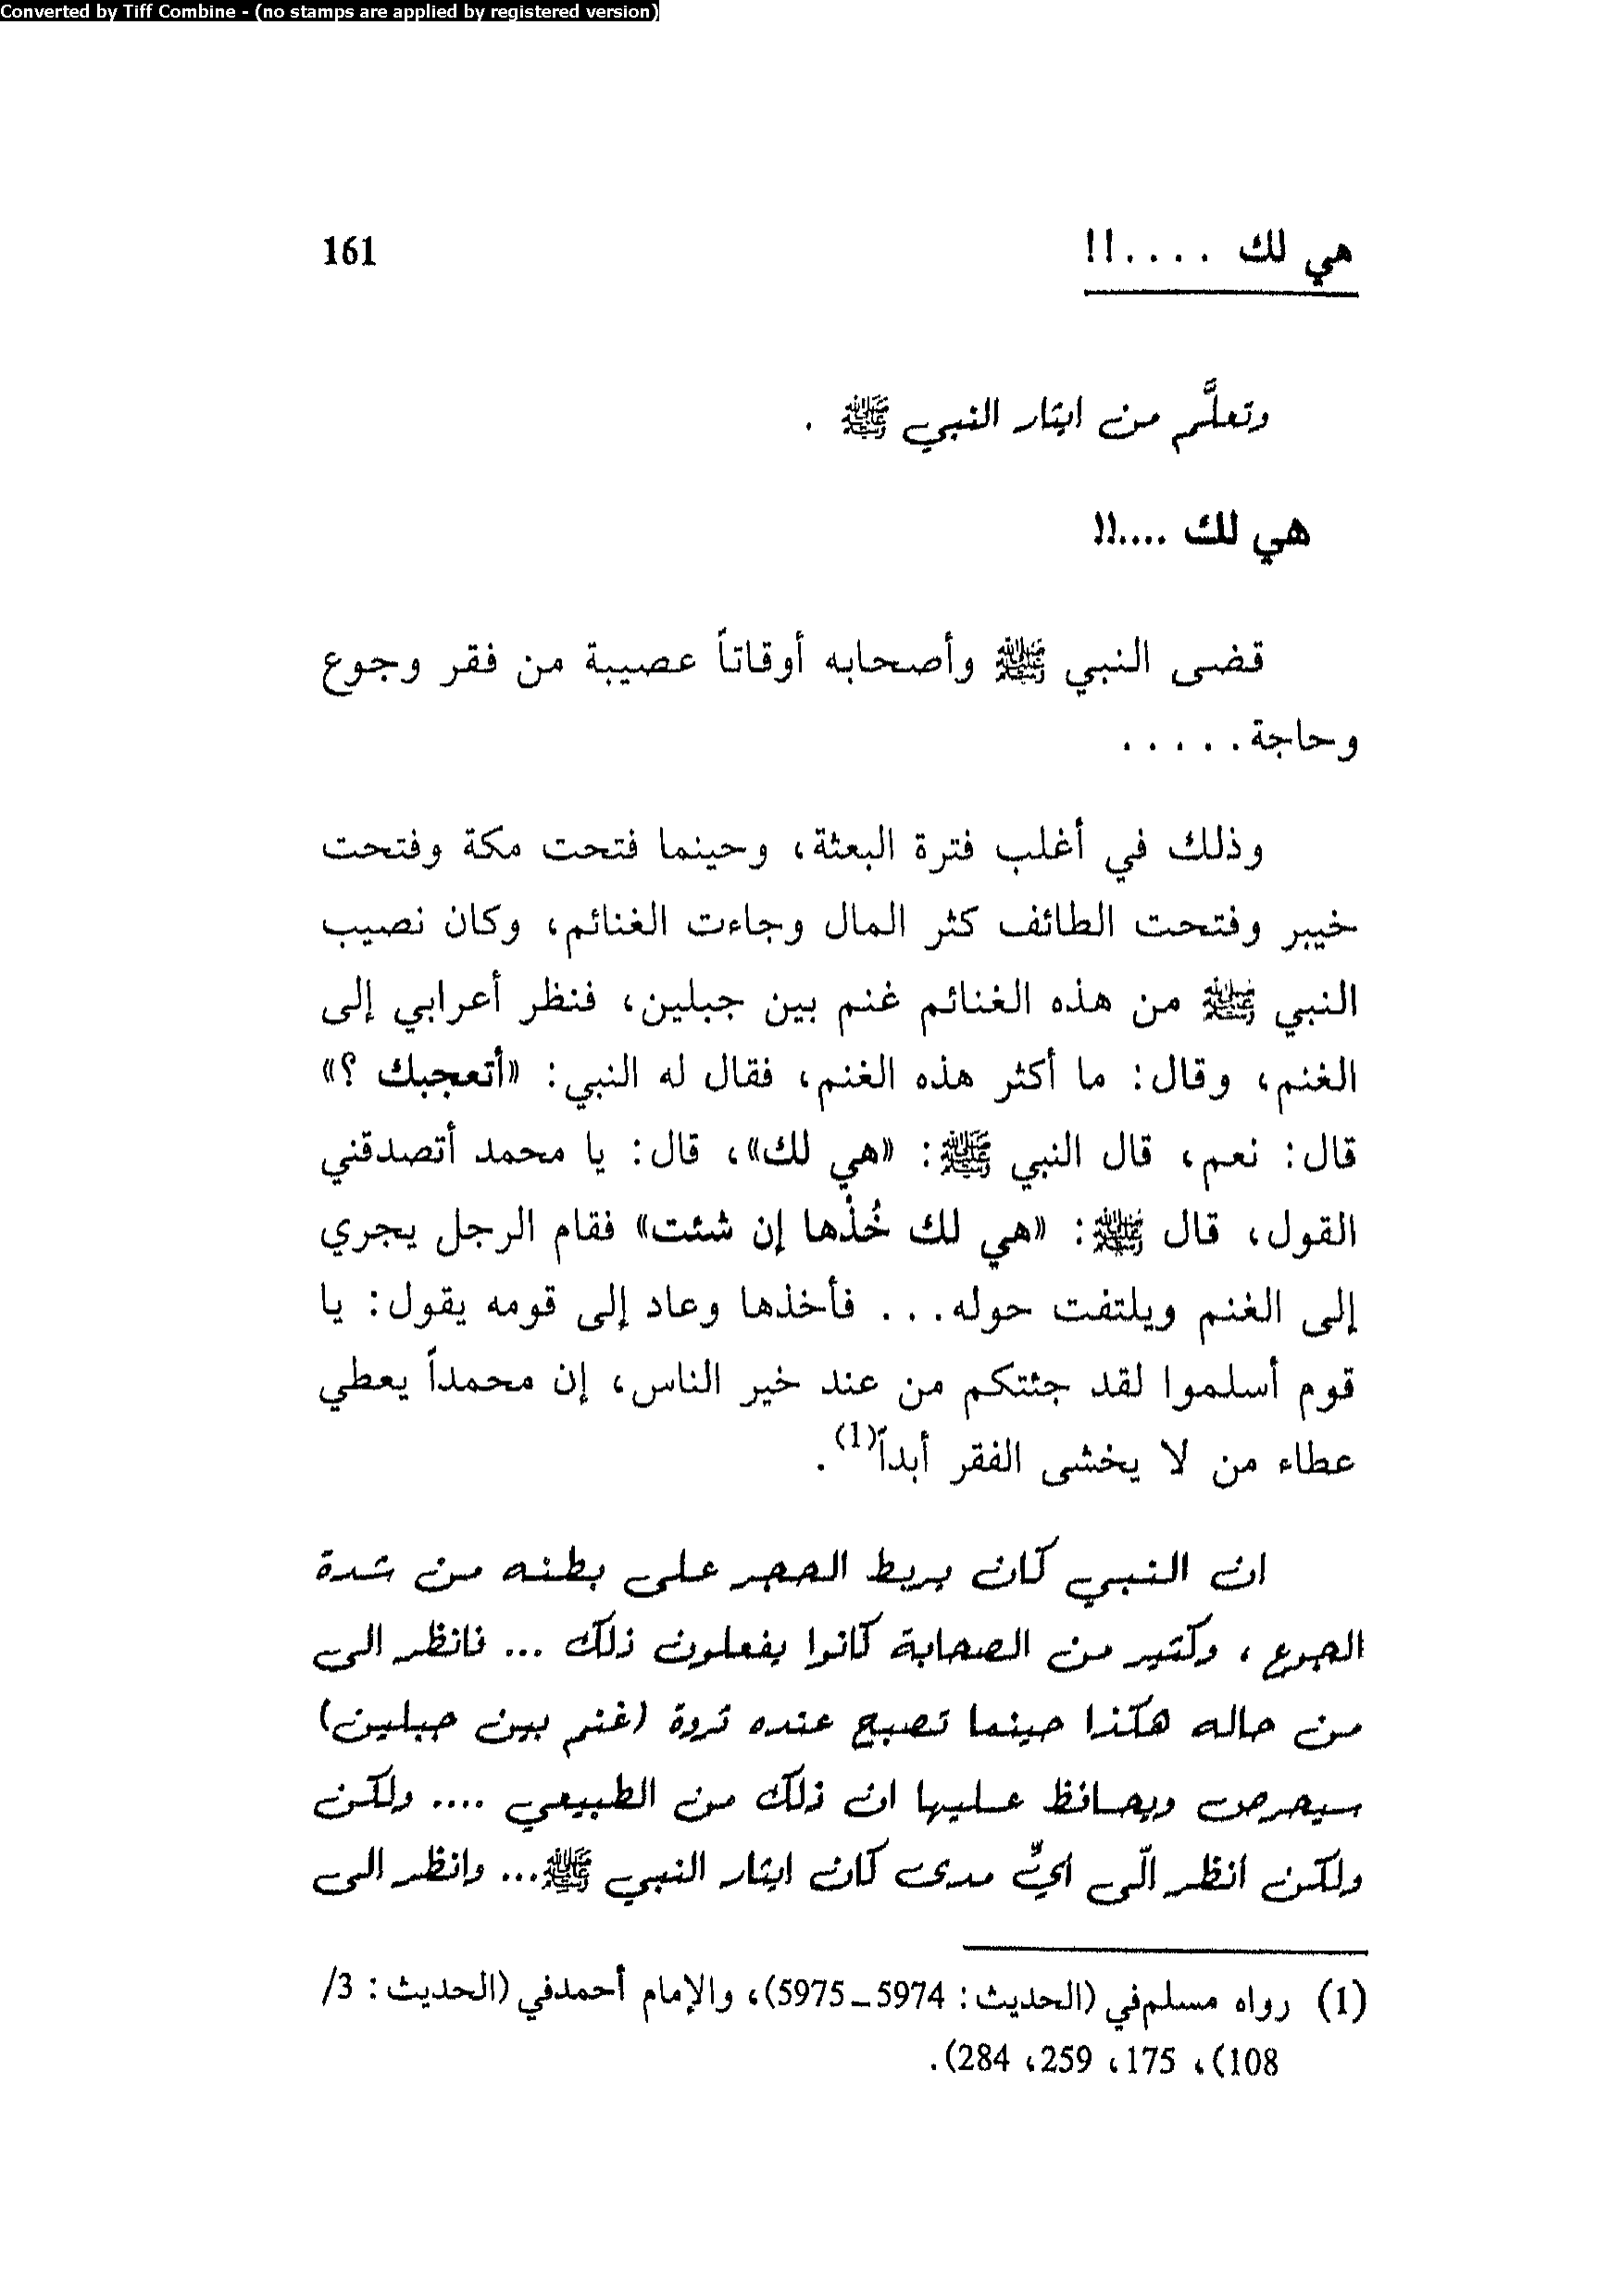 Converted by Tiff Combine - (no stamps are applied by registered version)
هي لك ....!! 161
وتعلَّم من ايثار النبي ﷺ .
هي لك ....!!
قضى النبي ﷺ وأصحابه أوقاتاً عصيبة من فقر وجوع
وحاجة.....
وذلك في أغلب فترة البعثة، وحينما فتحت مكة وفتحت
خيبر وفتحت الطائف كثر المال وجاءت الغنائم، وكان نصيب
النبي ﷺ من هذه الغنائم غنم بين جبلين، فنظر أعرابي إلى
الغنم، وقال: ما أكثر هذه الغنم، فقال له النبي: «أتعجبك ؟»
قال: نعم، قال النبي ﷺ: «هي لك»، قال: يا محمد أتصدقني
القول، قال ﷺ: «هي لك خُذْها إن شئت» فقام الرجل يجري
إلى الغنم ويلتفت حوله... فأخذها وعاد إلى قومه يقول: يا
قوم أسلموا لقد جئتكم من عند خير الناس، إن محمداً يعطي
عطاء من لا يخشى الفقر أبداً(1).
ان النبي كان يربط الحجر على بطنه من شدة
الجوع، وكثير من الصحابة كانوا يفعلون ذلك ... فانظر الى
من حاله هكذا حينما تصبح عنده ثروة (غنم بين جبلين)
سيحرص ويحافظ عليها ان ذلك من الطبيعي .... ولكن
ولكن انظر الّى أيِّ مدى كان ايثار النبي ﷺ... وانظر الى
(1) رواه مسلم في (الحديث: 5974 - 5975)، والإمام أحمد في (الحديث: 3/
108)، 175، 259، 284).